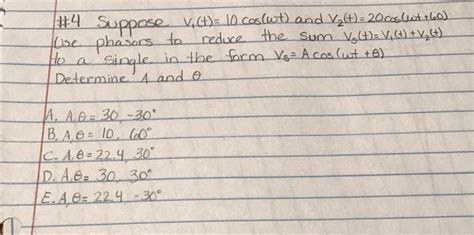 #4 Suppose V₁(t)=10 cos(wt) and V₂(t)=20cos(wt+60)
Use phasors to reduce the sum Vs(t)=V₁(t)+V₂(t)
to a single in the form Vs=A cos(wt+θ)
Determine A and θ
A. A,θ= 30, -30°
B. A,θ= 10, 60°
C. A,θ=22.4, 30°
D. A,θ= 30, 30°
E. A,θ= 22.4 -30°